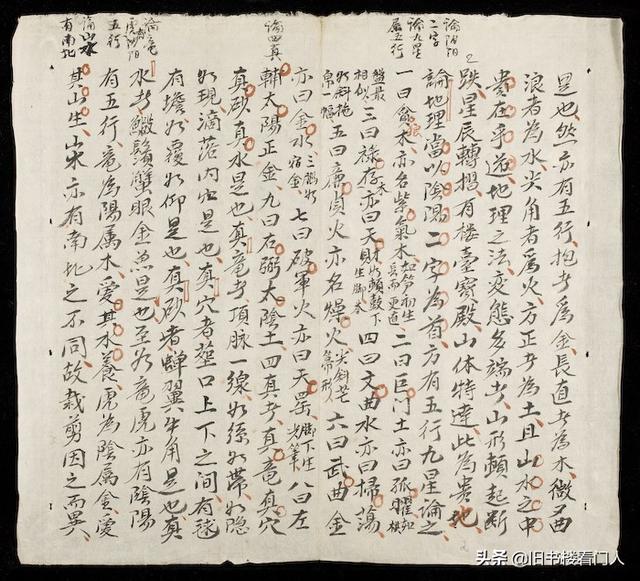 論陰陽
二字
論九星
屬五行
是也然亦有五行抱者為金長直者為木微曲
浪者為水尖角者為火方正者為土且山水之中
地理之法变態多端山形頓起断
跌星辰轉摺有楼臺寳殿山体特達此為貴地
論地理當以陰陽二字為首方有五行九星論之
一曰貪狼木亦名紫氣木如笋初生長而更直二曰巨门土亦曰孤曜如橫
盤最相似三曰祿存木亦曰天財如頓鼓下生脚拳四曰文曲水亦曰掃蕩
如斜拖帛一幅五曰廉貞火亦名燥火尖斜芒六曰武曲金
論四真
亦曰金水七曰破軍火亦曰天罡脚下生八曰左
輔太陽正金九曰右弼太陰土四真者真竜真穴
真砂真水是也真竜者頂脉一線如絲如帶如隐
如現滴落内穴是也真穴者塋口上下之间有毬
有擔如覆如仰是也真砂者蝉翼牛角是也真
論竜
虎砂陰陽
五行
水者鬚蟹眼金魚是也至於竜虎亦有陰陽
有五行竜為陽属木愛其水養虎為陰属金愛
論山水
有南北
其山生山水亦有南北之不同故裁剪因之而異
头条 @旧书楼看门人